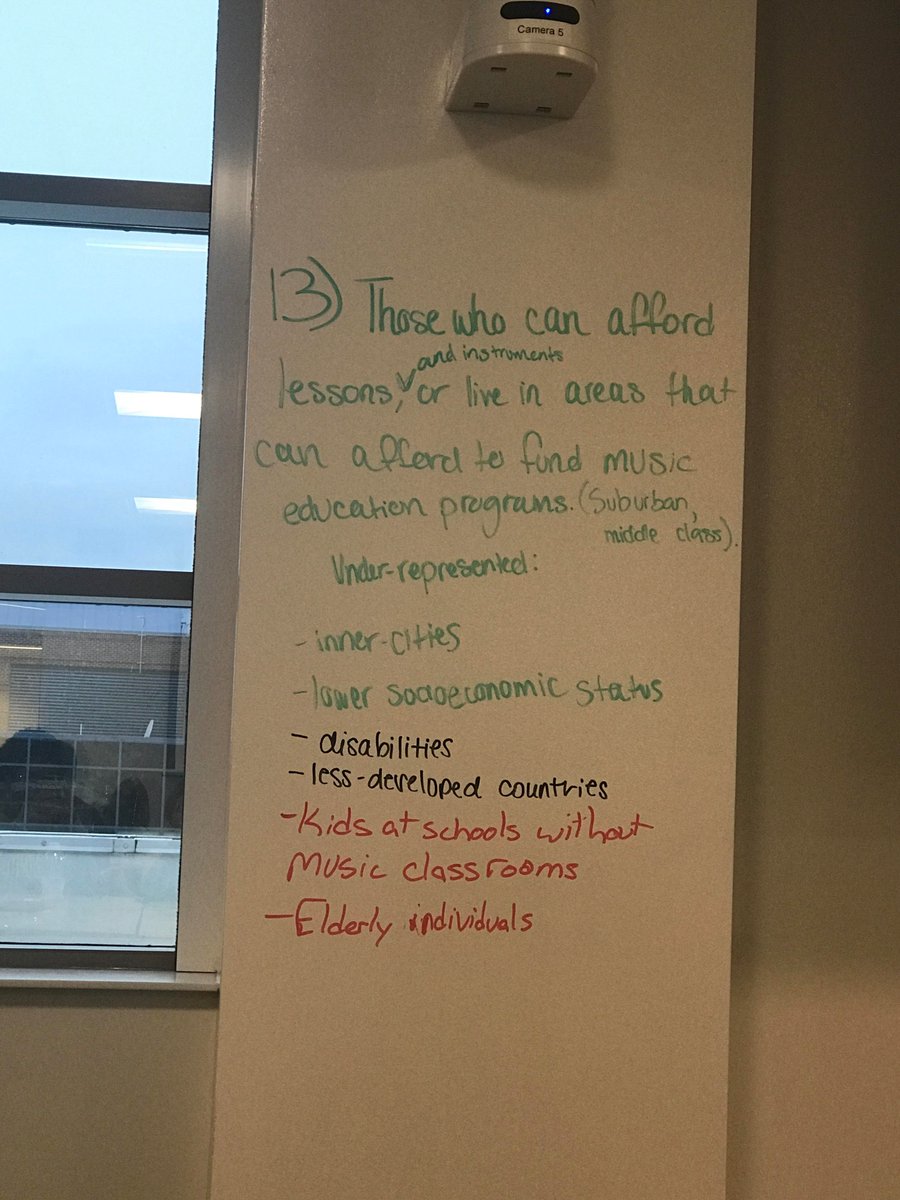 Camera 5
13) Those who can afford
and instruments
lessons, or live in areas that
can afford to fund music
education programs. (Suburban,
middle class).
Under-represented:
- inner-cities
- lower socioeconomic status
- disabilities
- less-developed countries
- Kids at schools without
Music classrooms
- Elderly individuals